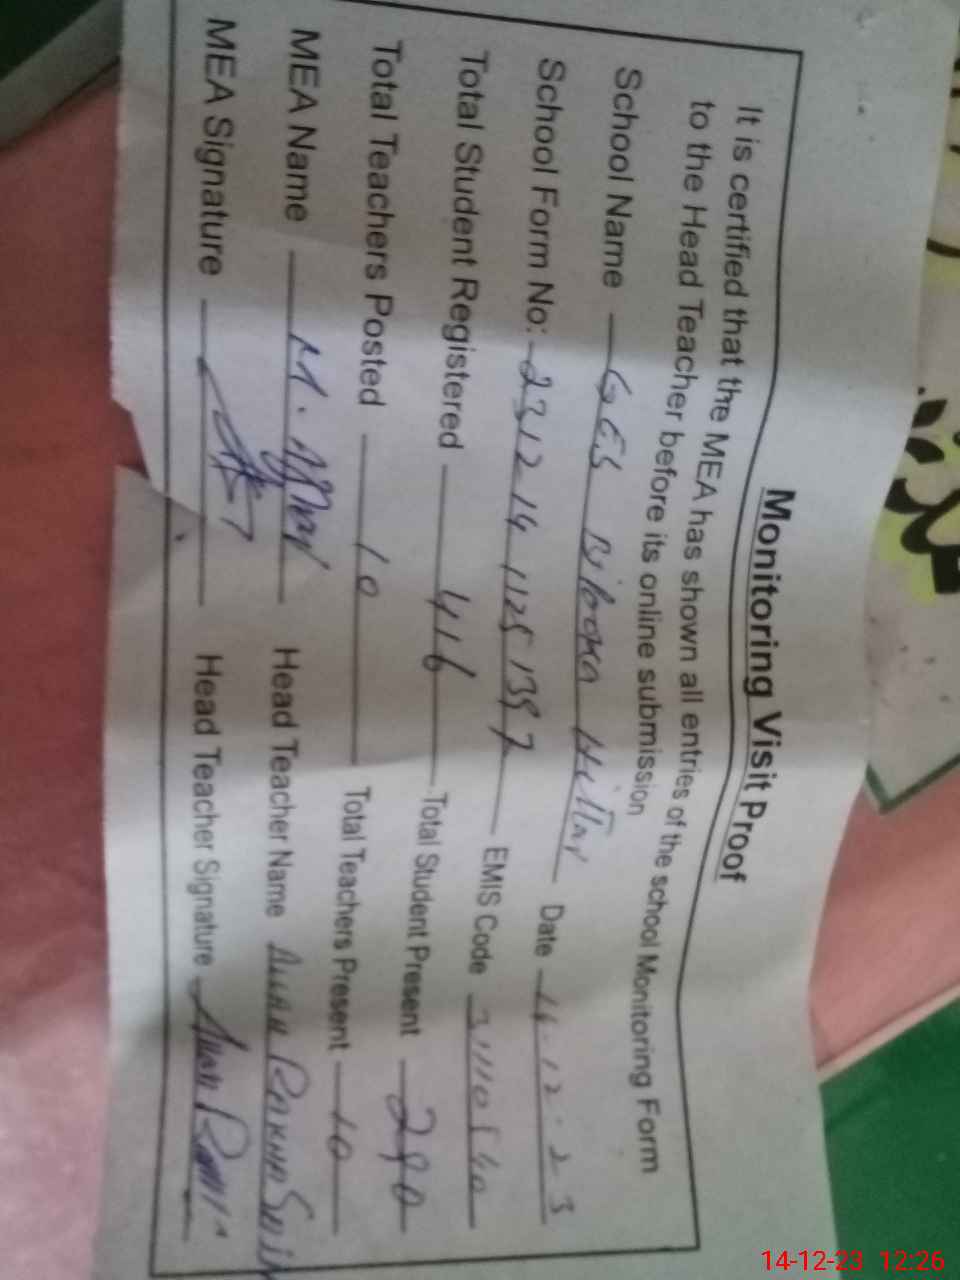 Monitoring Visit Proof
It is certified that the MEA has shown all entries of the school Monitoring Form
to the Head Teacher before its online submission
School Name GES Date 14-12-23
School Form No: 23121411251397 EMIS Code
Total Student Registered 416 Total Student Present 290
Total Teachers Posted 10 Total Teachers Present 10
MEA Name M. Head Teacher Name
MEA Signature Head Teacher Signature
14-12-23 12:26